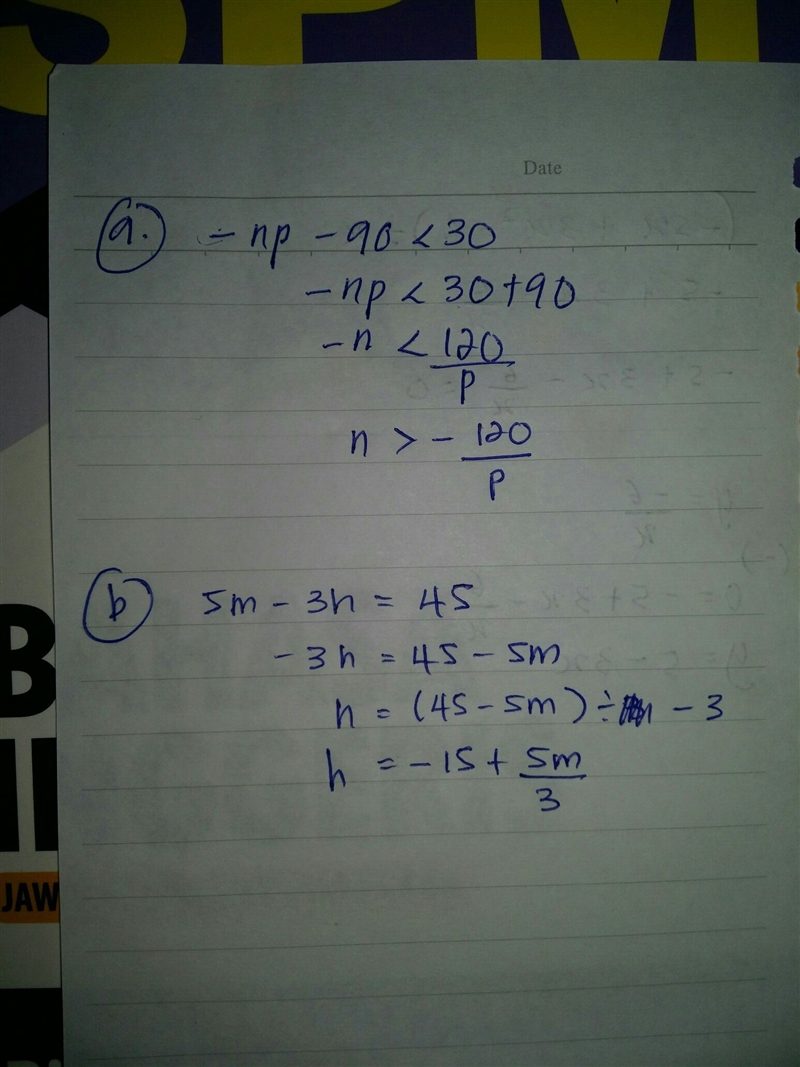 SPM
Date
a. -np - 90 < 30
-np < 30 + 90
-n < 120/p
n > - 120/p
b 5m - 3h = 45
-3h = 45 - 5m
h = (45 - 5m) ÷ - 3
h = -15 + 5m/3
B
JAW